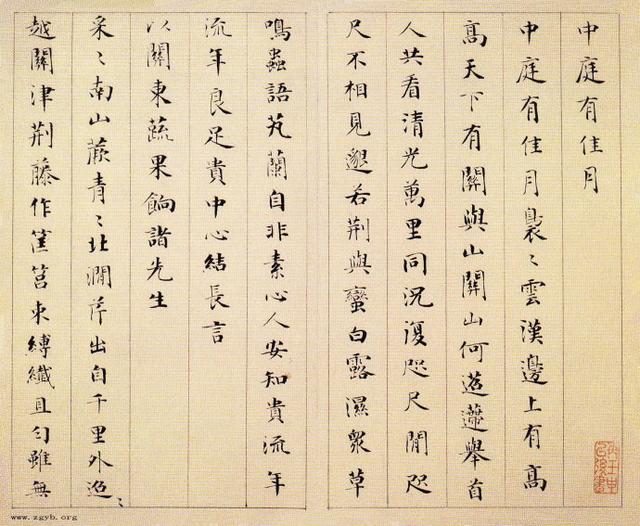 中庭有佳月
中庭有佳月裊〻雲漢邊上有高
高天下有關與山關山何迢遰舉首
人共看清光萬里同況復咫尺間咫
尺不相見邈若荆與蠻白露濕眾草
鳴蟲語芄蘭自非素心人安知貴流年
流年良足貴中心結長言
以關東蔬果餉諸先生
采〻南山蕨青〻北澗芹出自千里外迢〻
越關津荆藤作筐筥束縛纖且勻雖無
www.zgyb.org